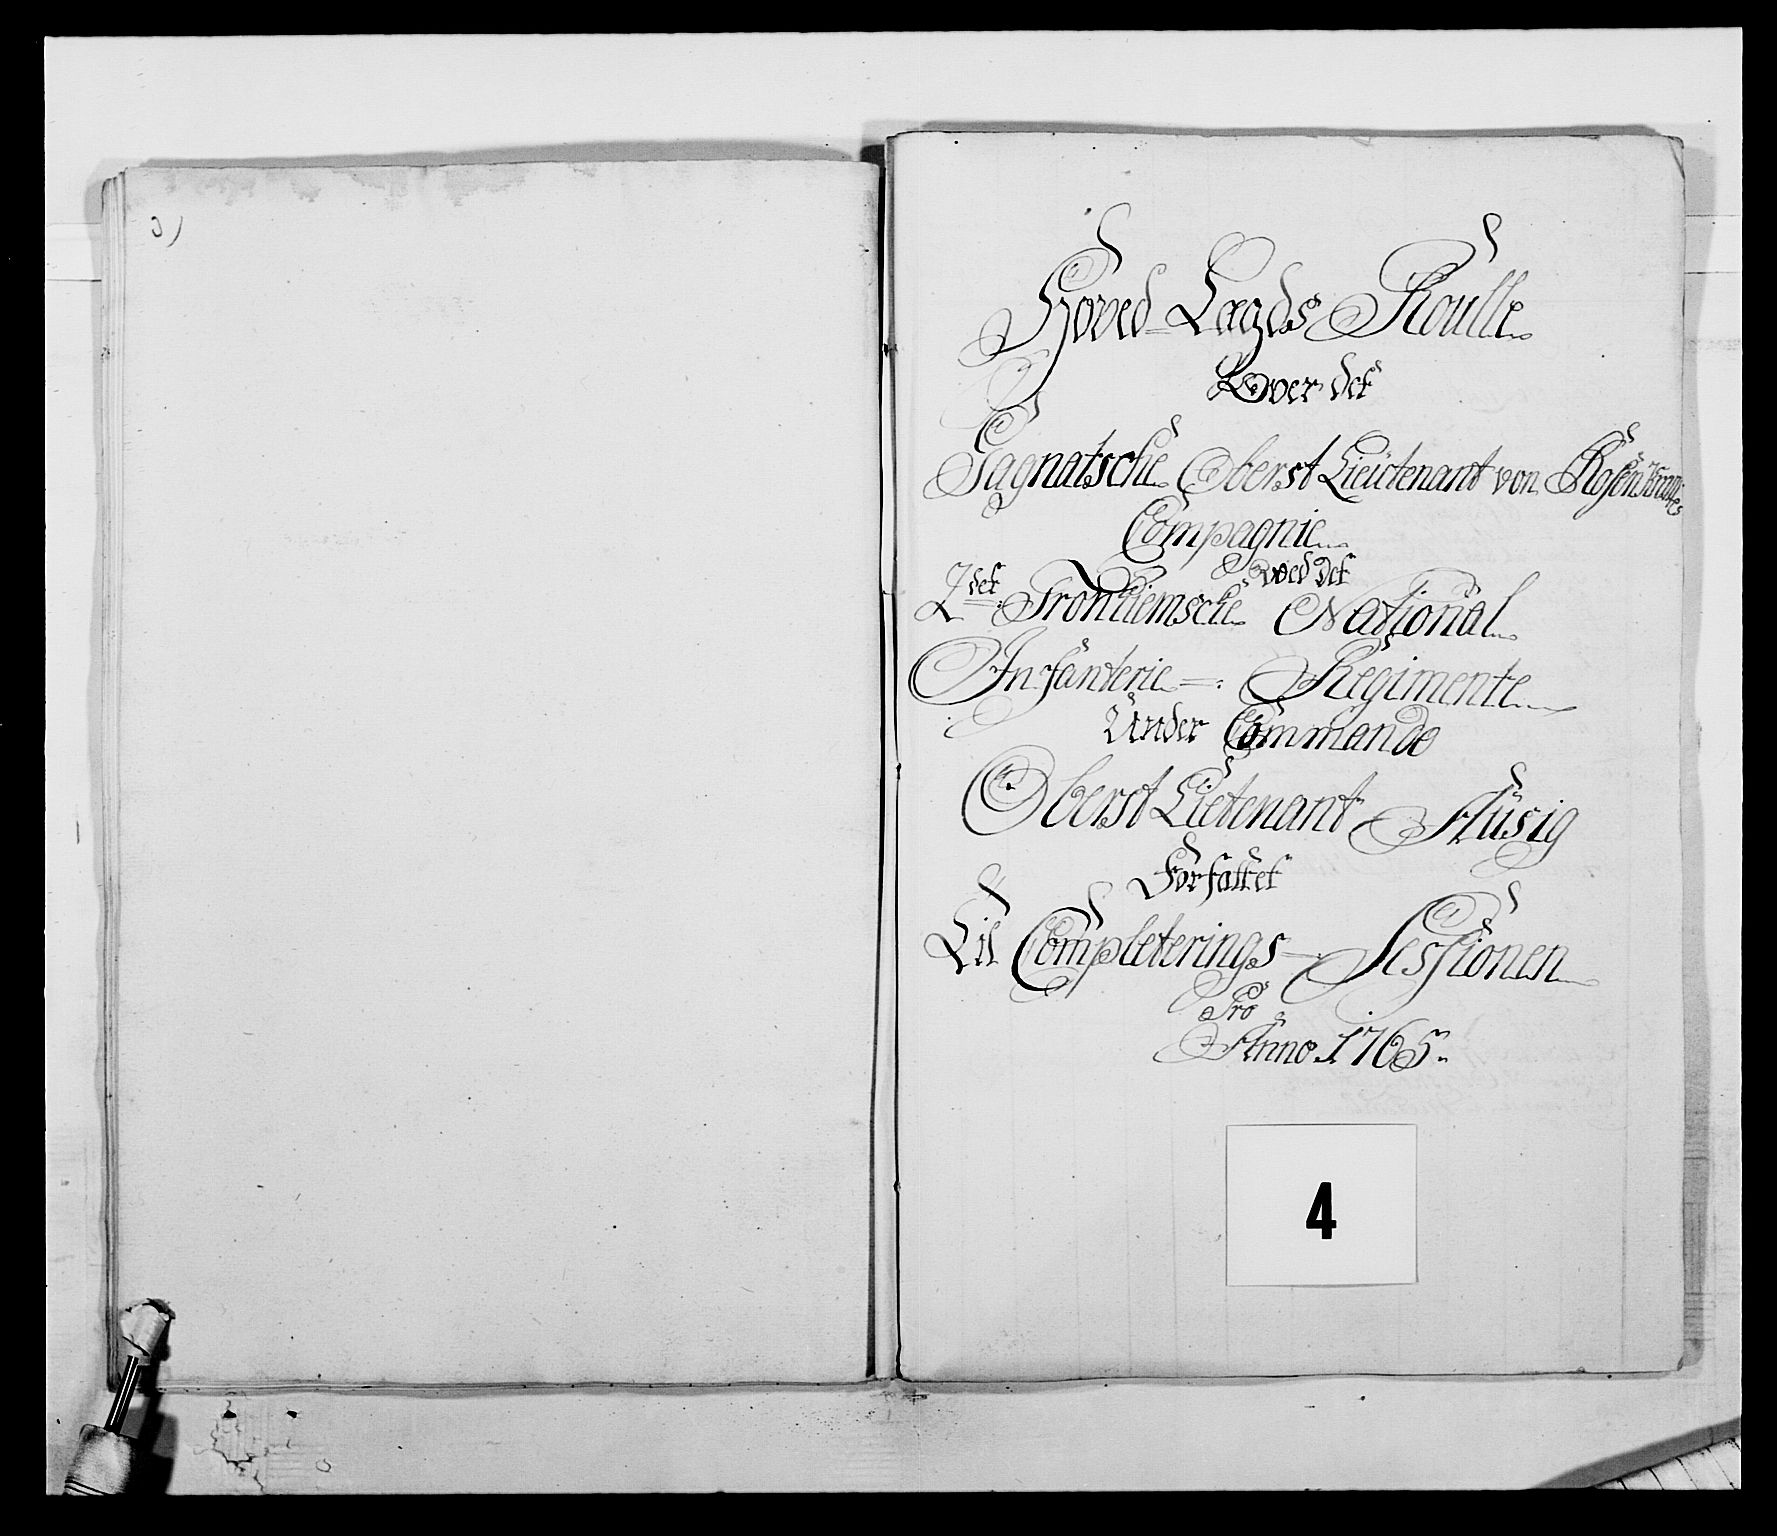 3)
Hoved-Lægds Roulle
Over det
Oberst Lieutenant von
Compagnie
ved det
2det Tronhiemsche National
Infanterie = Regimente
Under Commando
Oberst Lietenant Husig
Forfattet
Til Completerings-Sessionen
Pro
Anno 1765.
4